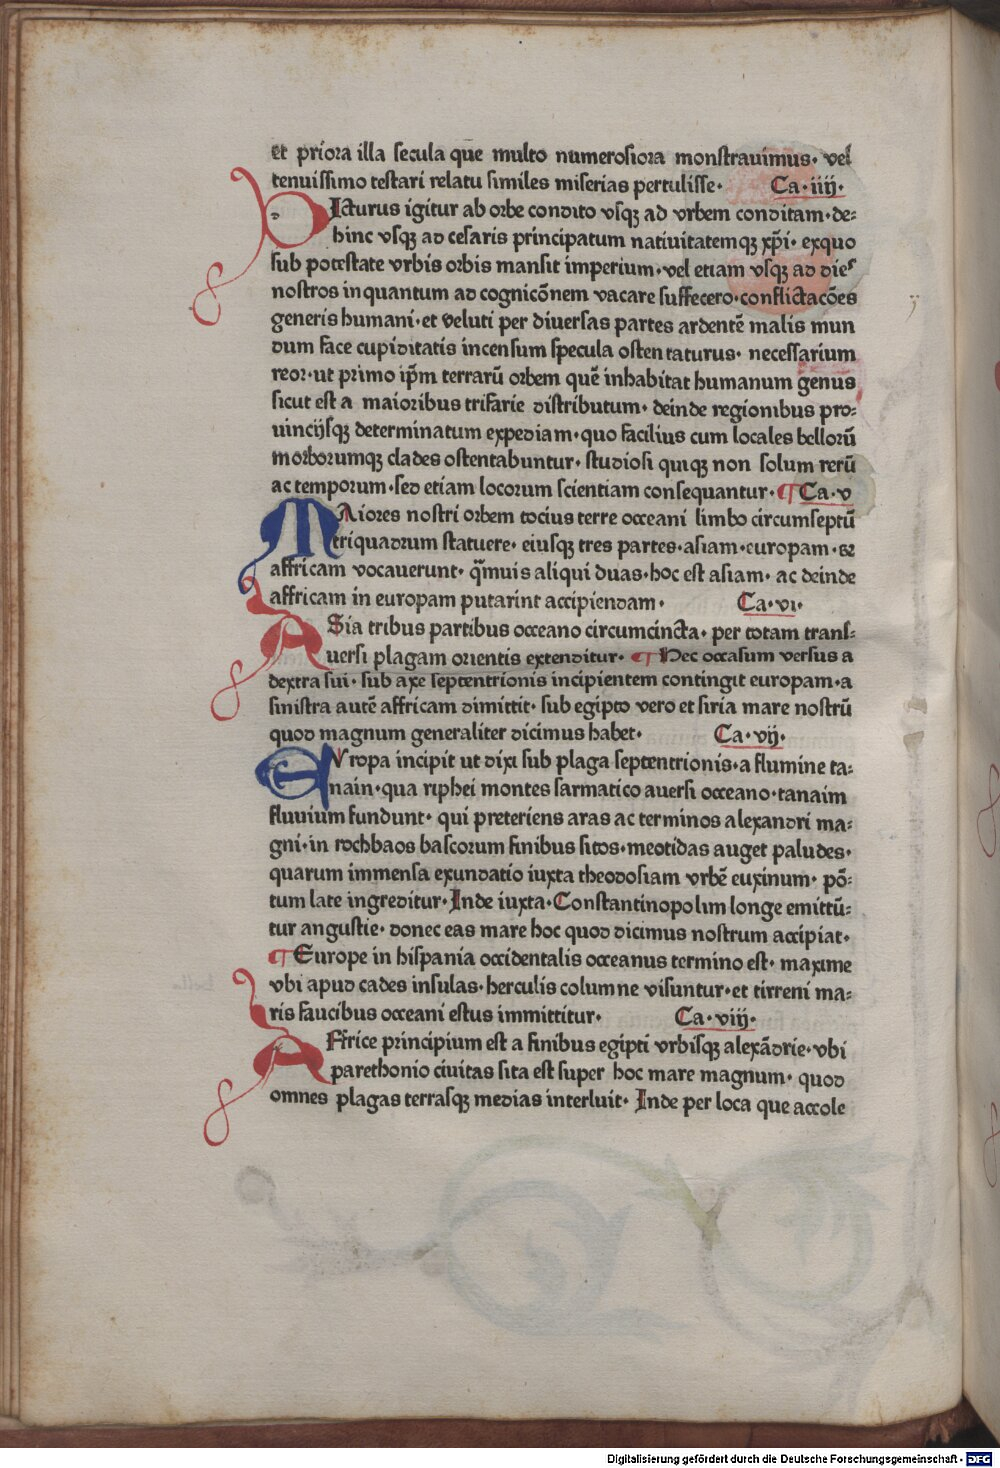 et priora illa secula que multo numerosiora monstrauimus· vel
tenuissimo testari relatu similes miserias pertulisse· Ca·iiij·
DIcturus igitur ab orbe condito vsqꝫ ad vrbem conditam·de⸗
hinc vsqꝫ ad cesaris principatum natiuitatemqꝫ xp̄i· exquo
sub potestate vrbis orbis mansit imperium·vel etiam vsqꝫ ad dies
nostros inquantum ad cognicōnem vacare suffecero·conflictacōes
generis humani·et veluti per diuersas partes ardentē malis mun
dum face cupiditatis incensum specula ostentaturus· necessarium
reor·ut primo ip̄m terrarū orbem quē inhabitat humanum genus
sicut est a maioribus trifarie distributum· deinde regionibus pro⸗
uincijsqꝫ determinatum expediam·quo facilius cum locales bellorū
morborumqꝫ clades ostentabuntur· studiosi quiqꝫ non solum rerū
ac temporum·sed etiam locorum scientiam consequantur· ¶Ca·v
MAiores nostri orbem tocius terre occeani limbo circumseptū
triquadrum statuere· eiusqꝫ tres partes·asiam·europam·et
affricam vocauerunt· q̄muis aliqui duas·hoc est asiam· ac deinde
affricam in europam putarint accipiendam· Ca·vi·
ASia tribus partibus occeano circumcincta· per totam trans⸗
uersi plagam orientis extenditur· ¶Hec occasum versus a
dextra sui· sub axe septentrionis incipientem contingit europam·a
sinistra autē affricam dimittit· sub egipto vero et siria mare nostrū
quod magnum generaliter dicimus habet· Ca·vij·
EVropa incipit ut dixi sub plaga septentrionis·a flumine ta⸗
nain·qua riphei montes sarmatico auersi occeano·tanaim
fluuium fundunt· qui preteriens aras ac terminos alexandri ma⸗
gni·in rochbaos bascorum finibus sitos·meotidas auget paludes·
quarum immensa exundatio iuxta theodosiam vrbē euxinum· pō⸗
tum late ingreditur·Inde iuxta·Constantinopolim longe emittū⸗
tur angustie· donec eas mare hoc quod dicimus nostrum accipiat·
¶Europe in hispania occidentalis occeanus termino est· maxime
vbi apud cades insulas·herculis columne visuntur·et tirreni ma⸗
ris faucibus occeani estus immittitur· Ca·viij·
AFfrice principium est a finibus egipti vrbisqꝫ alexādrie·vbi
parethonio ciuitas sita est super hoc mare magnum· quod
omnes plagas terrasqꝫ medias interluit· Inde per loca que accole
Digitalisierung gefördert durch die Deutsche Forschungsgemeinschaft - DFG